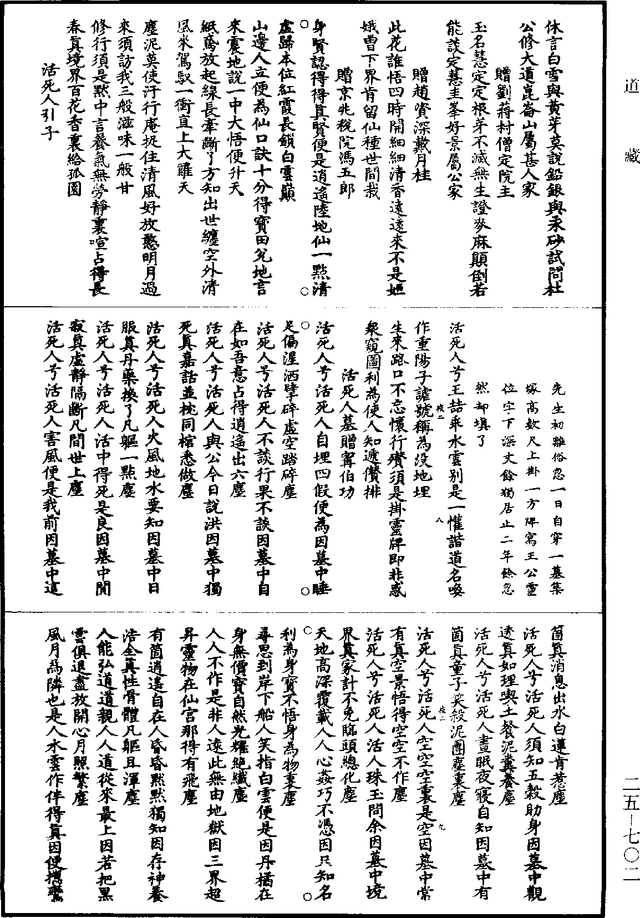 道藏
休言白雪與黃芽莫說鉛銀與汞砂試問杜
公修大道崑崙山屬甚人家
贈劉蔣村僧定院主
玉名慧定定根芽不滅無生證麥麻顛倒若
能談定慧圭峯好景屬公家
贈趙資深戴月桂
此花誰悟四時開細細清香遠遠來不是姮
娥曾下界肯留仙種世間栽
贈京兆税院馮五郎
身賢認得得真賢便是逍遙陸地仙一點清
虛歸本位紅霞長鎖白雲巔
山邊人立便為仙口訣十分得寶田兌地言
來震地說一中大悟便升天
紙鳶放起線長牽斷了方知出世纏空外清
風來駕馭一衝直上大羅天
塵泥莫使汙行庵捉住清風好放憨明月過
來須訪我三般滋味一般甘
修行須是默中言養氣無勞靜裏喧占得長
春真境界百花香裏給孤園
活死人引子
先生初離俗忽一日自穿一墓築
塚高數尺上掛一方牌寫王公靈
位字下深丈餘獨居止二年餘忽
然却填了
活死人兮王喆乖水雲別是一懽諧道名喚
作重陽子謔號稱為没地埋
生來路口不忘懷行殯須是掛靈牌即非惑
衆窺圖利為使人知遞儹排
活死人墓贈甯伯功
活死人兮活死人自埋四假便為因墓中睡
足偏湦洒擘碎虛空踏碎塵
活死人兮活死人不談行果不談因墓中自
在如吾意占得逍遙出六塵
活死人兮活死人與公今日說洪因墓中獨
死真嘉話並枕同棺悉做塵
活死人兮活死人火風地水要知因墓中日
服真丹藥換了凡軀一點塵
活死人兮活死人活中得死是良因墓中閴
寂真虛靜隔斷凡間世上塵
活死人兮活死人害風便是我前因墓中這
箇真消息出水白蓮肯惹塵
活死人兮活死人須知五穀助身因墓中觀
透真如理喫土餐泥糞養塵
活死人兮活死人晝眠夜寢自知因墓中有
箇真童子笑殺泥團塵裏塵
活死人兮活死人空空空裏是空因墓中常
有真空景悟得空空不作塵
活死人兮活死人活人珠玉問余因墓中境
界真家計不免臨頭總化塵
天地高深覆載人人心姦巧不憑因只知名
利為身寶不悟身為物裏塵
尋思到岸下船人笑指白雲便是因丹插在
身無價寶自然光耀絶纖塵
人人不作是非人遠此無由地獄因三界超
昇靈物在仙宫那得有飛塵
有箇逍遙自在人昏昏默默獨知因存神養
浩全真性骨體凡軀且渾塵
人能弘道道親人人道從來最上因若把黑
雲俱退盡放開心月照繁塵
風月為隣也是人水雲作伴得真因便攜鸞
二五—七〇二